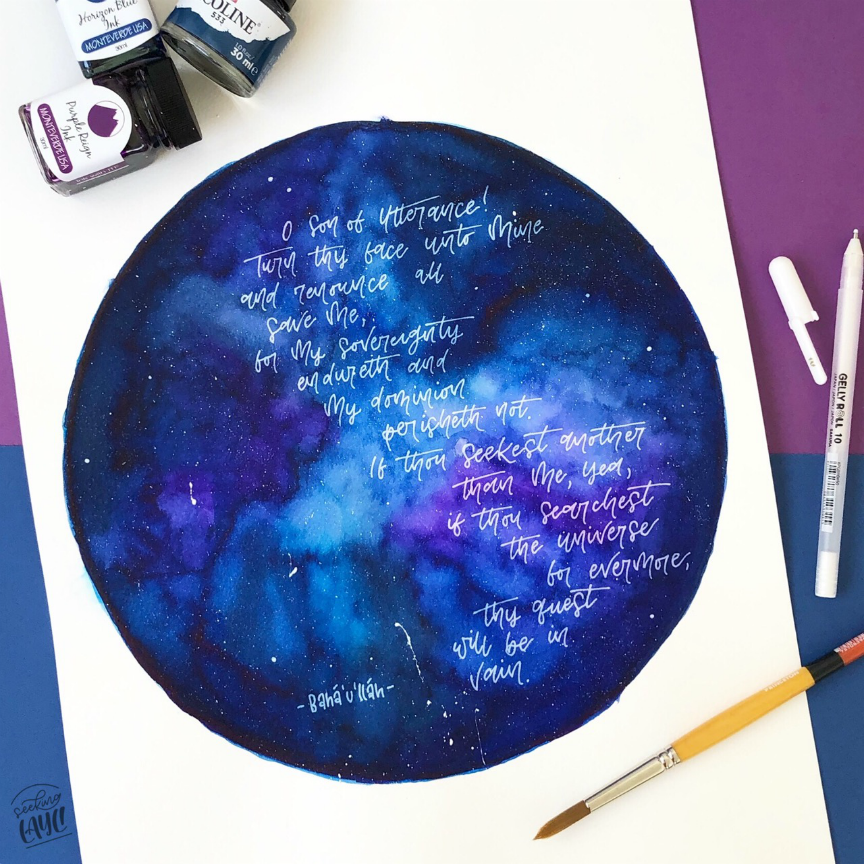 Horizon Blue
Ink
MONTEVERDE USA
30ml
COLINE
533
30 ml e
Purple Reign
Ink
MONTEVERDE USA
O son of Utterance!
Turn thy face unto Mine
and renounce all
save Me,
for My sovereignty
endureth and
My dominion
perisheth not.
If thou seekest another
than Me, yea,
if thou searchest
the universe
for evermore,
thy quest
will be in
vain.
- Bahá'u'lláh -
GELLY ROLL 10
seeking